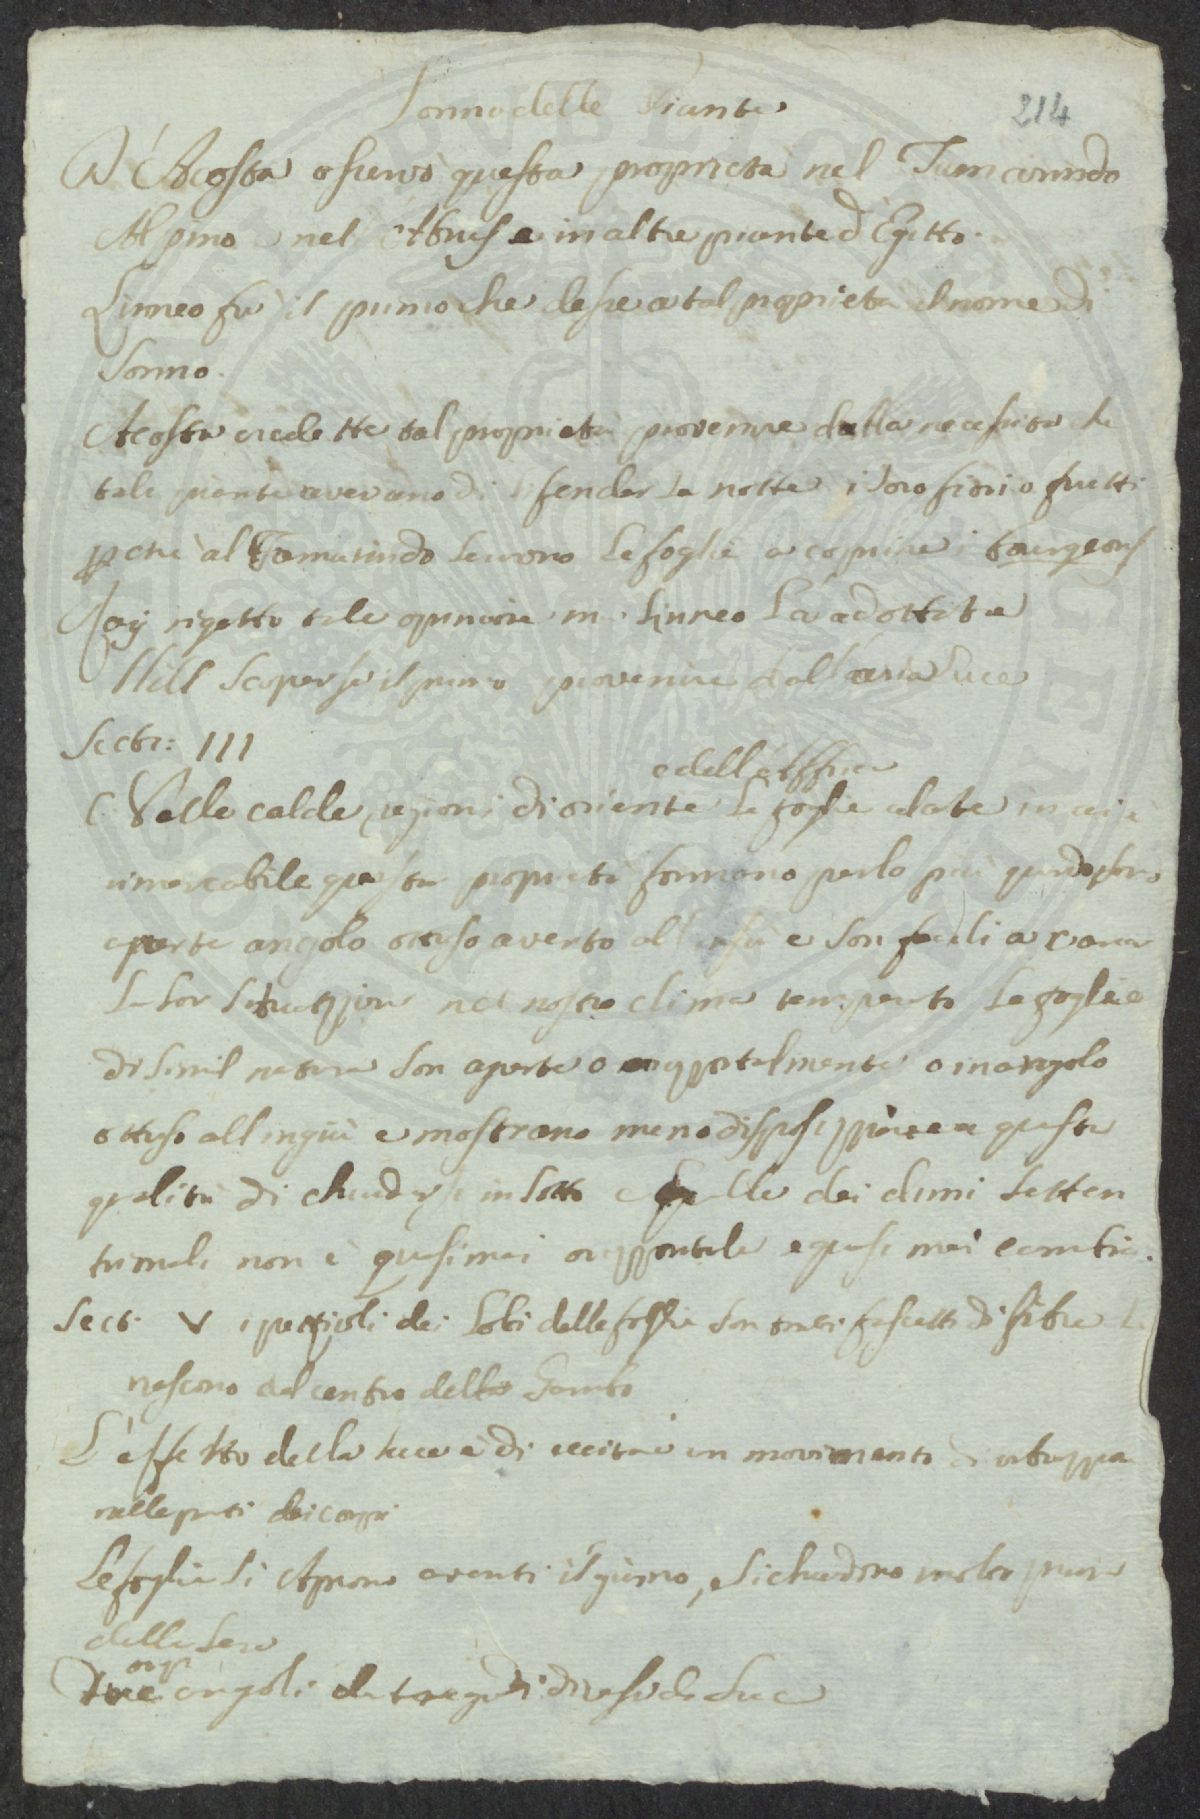 Sonno delle Piante
214
D'Acosta osservò questa proprietà nel Tamarindo
Alpino nel Abrus e in altre piante d'Egitto.
Linneo fù il primo che desse a tal proprietà il nome di
Sonno.
Acosta credette tal proprietà provenire dalla necessità che
tali piante avevano di difender la notte i loro fiori o frutti
perchè al Tamarindo servono le foglie a coprire i bourgeons
Ray rigettò tale opinione Linneo l'à adottata
Hill scoperse il primo provenire dall'aria luce
Sect: III
e dell'Affrica
Nelle calde regioni di oriente le foglie alate in cui è
rimarcabile questa proprietà formano per lo più quando sono
aperte angolo ottuso averto all'insù e son facili a
la lor situazzione nel nostro clima temperato le foglie
di simil natura son aperte o orizzontalmente o in angolo
ottuso all'ingiù e mostrano meno disposizzione a questa
qualità di chiudersi in sotto e quelle dei climi setten
trionali non è quasi mai orizzontale e quasi mai cambia.
Sect. V i pezzioli dei lobi delle foglie son tanti fascetti di fibre che
nascono dal centro dello Gambo
L'effetto della luce è di eccitare un movimento
nelle parti dei corpi
Le foglie si aprono avanti il giorno, e si chiudono molto prima
della sera
angoli di luce